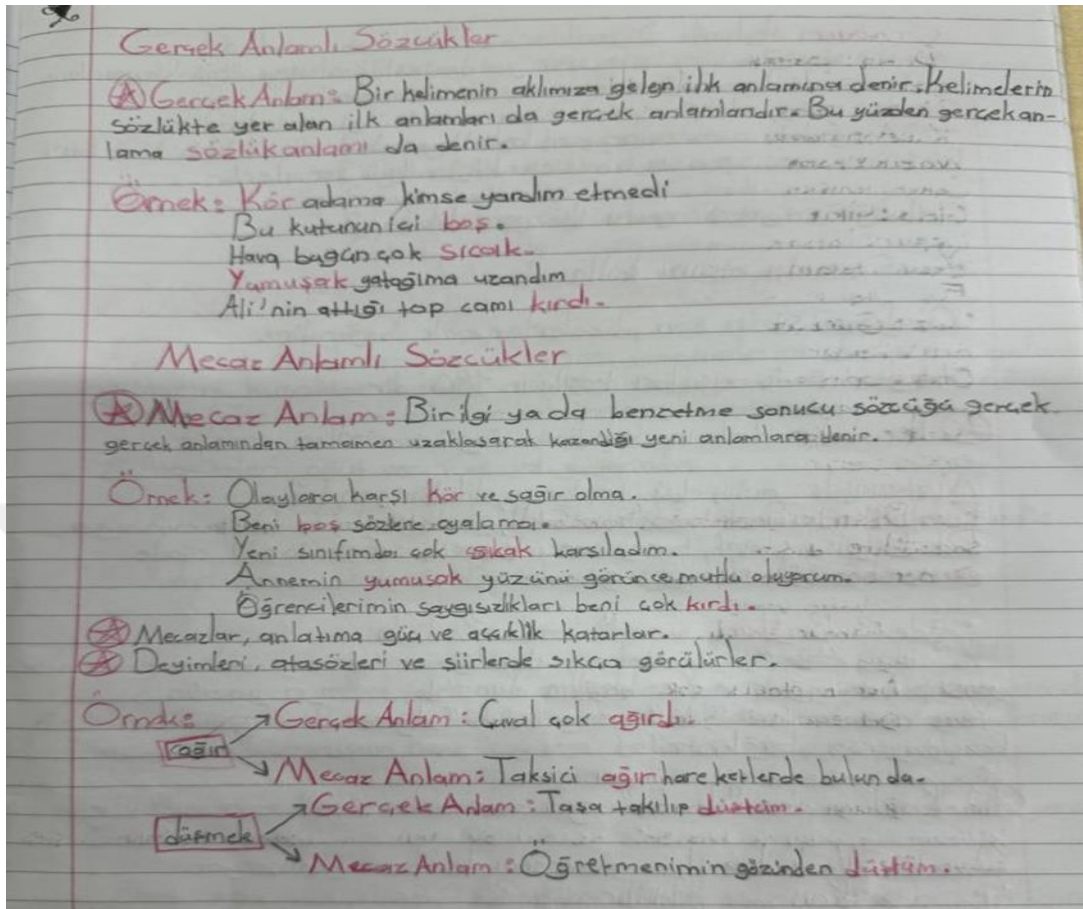 Gerçek Anlamlı Sözcükler
Gerçek Anlam: Bir kelimenin aklımıza gelen ilk anlamına denir. Kelimelerin
sözlükte yer alan ilk anlamları da gerçek anlamlarıdır. Bu yüzden gerçek an-
lama sözlük anlamı da denir.
Örnek: Kör adama kimse yardım etmedi
Bu kutunun içi boş.
Hava bugün çok sıcak.
Yumuşak yatağıma uzandım
Ali'nin attığı top camı kırdı.
Mecaz Anlamlı Sözcükler
Mecaz Anlam: Bir ilgi yada benzetme sonucu sözcüğü gerçek
gerçek anlamından tamamen uzaklaşarak kazandığı yeni anlamlara denir.
Örnek: Olaylara karşı kör ve sağır olma.
Beni boş sözlerle oyalama.
Yeni sınıfımda çok sıcak karşıladım.
Annemin yumuşak yüzünü görünce mutlu oluyorum.
Öğrencilerimin saygısızlıkları beni çok kırdı.
Mecazlar, anlatıma güç ve açıklık katarlar.
Deyimleri, atasözleri ve şiirlerde sıkça görülürler.
Örnek: Gerçek Anlam: Çuval çok ağırdı.
ağır
Mecaz Anlam: Taksici ağır hareketlerde bulundu.
Gerçek Anlam: Taşa takılıp düştüm.
düşmek
Mecaz Anlam: Öğretmenimin gözünden düştüm.